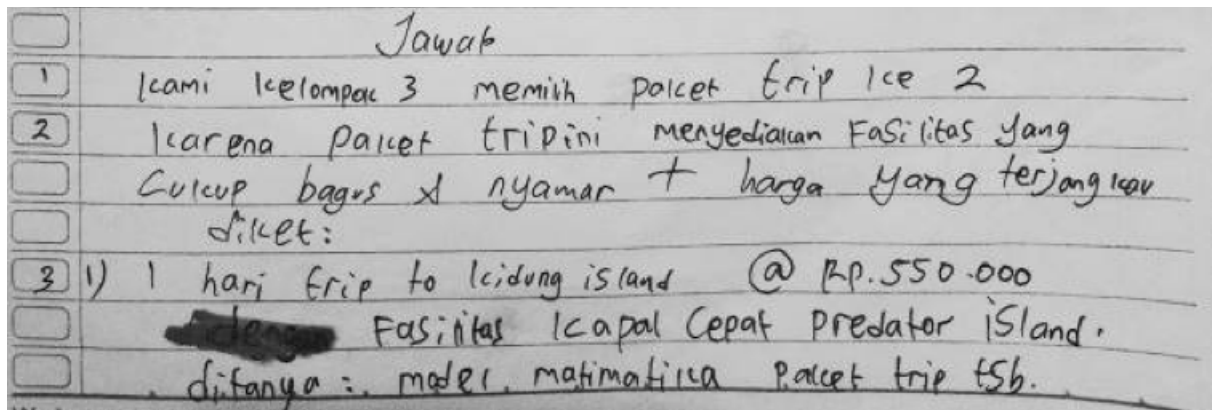 Jawab
1 kami kelompok 3 memilih paket trip ke 2
2 karena paket trip ini menyediakan Fasilitas yang
Cukup bagus & nyaman + harga yang terjangkau
diket:
3 1) 1 hari trip to kidung island @ Rp. 550.000
Fasilitas kapal Cepat Predator island.
ditanya : model matimatika Paket trip tsb.